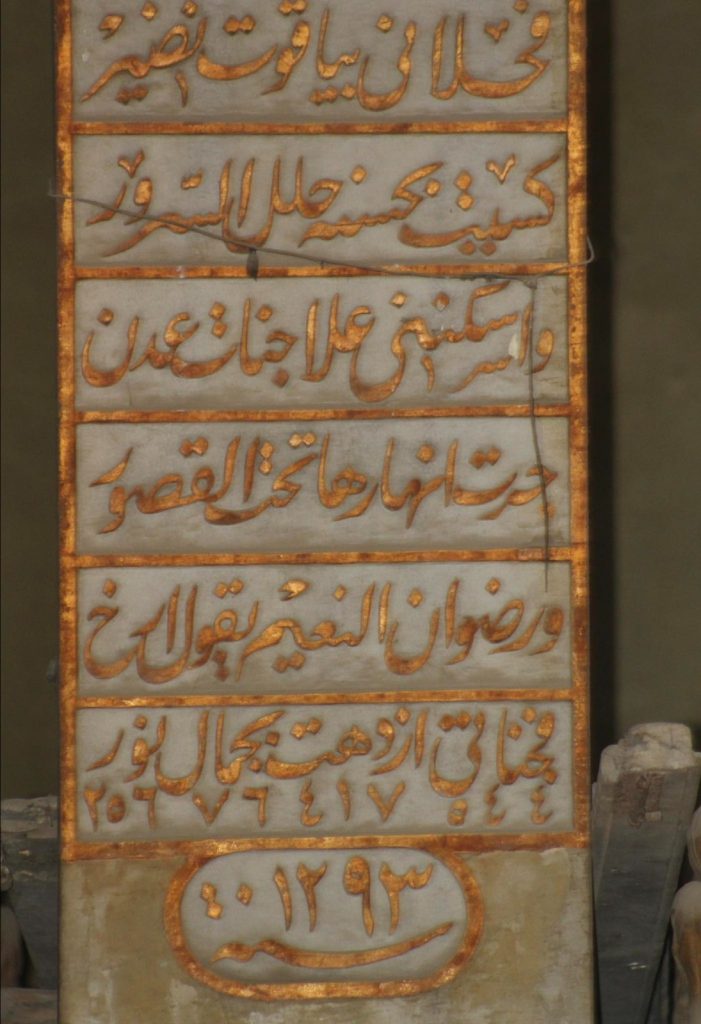 فحلاني بياقوت نضير
كسيت بحسنه حلل السرور
واسكنني علا جنات عدن
جرت انهارها تحت القصور
ورضوان النعيم يقول ارخ
فجناتي ازدهت بجمال نور
٥٤٤ ٤١٧ ٧٦ ٢٥٦
١٢٩٣
سنة